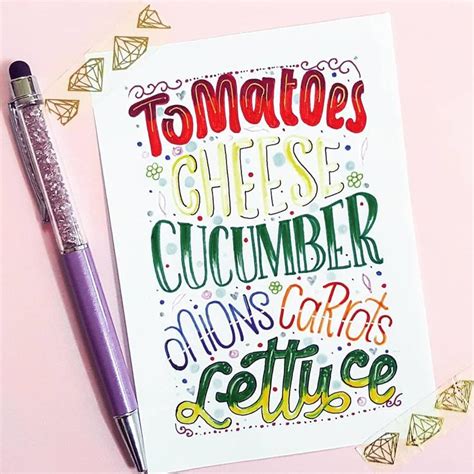 TOMatOes
CHEESE
CUCUMBER
ONIONS CaRROts
Lettuce